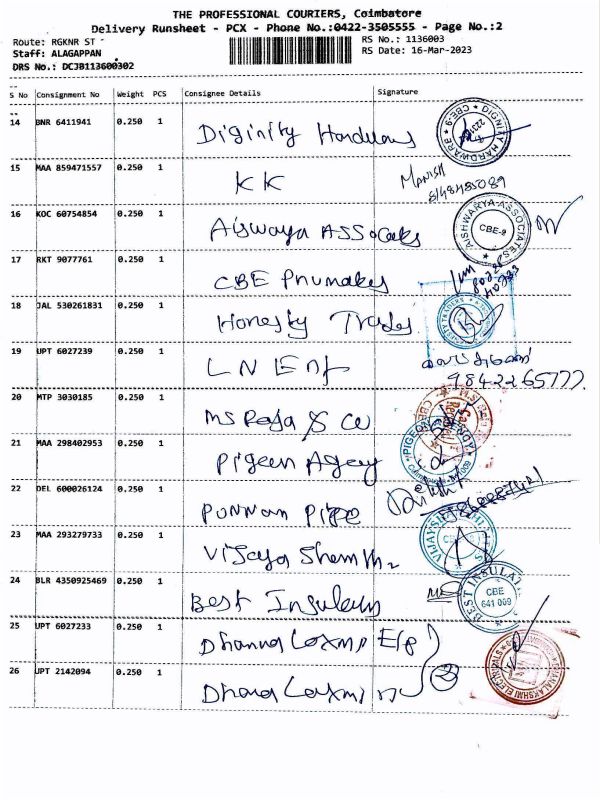 THE PROFESSIONAL COURIERS, Coimbatore
Delivery Runsheet - PCX - Phone No.:0422-3505555 - Page No.:2
Route: RGKNR ST
RS No.: 1136003
Staff: ALAGAPPAN
RS Date: 16-Mar-2023
DRS No.: DCJB113600302
S No Consignment No Weight PCS Consignee Details Signature
14 BNR 6411941 0.250 1 Diginity Handwars
CBE-9 DIGNITY HARDWARE
15 MAA 859471557 0.250 1 KK
MANISH
8148485089
16 KOC 60754854 0.250 1 Aiswaya ASSocates
AISHWARYA ASSOCIATES CBE-9
17 RKT 9077761 0.250 1 CBE Pnumakes
18 JAL 530261831 0.250 1 Honesty Trades
19 UPT 6027239 0.250 1 LN Ent
9842265777.
20 MTP 3030185 0.250 1 MS Raja & co
21 MAA 298402953 0.250 1 Pigeen Agecy
PIGEON AGENCY
22 DEL 600026124 0.250 1 Punnan Pipe
23 MAA 293279733 0.250 1 Vijaya Shemth
24 BLR 4350925469 0.250 1 Best Insulaum
BEST INSULAT CBE 641 009
25 UPT 6027233 0.250 1 Dhanna Laxmi E/P
26 UPT 2142094 0.250 1 Dhana Laxmi
2
DHANALAKSHMI ELECTRICALS